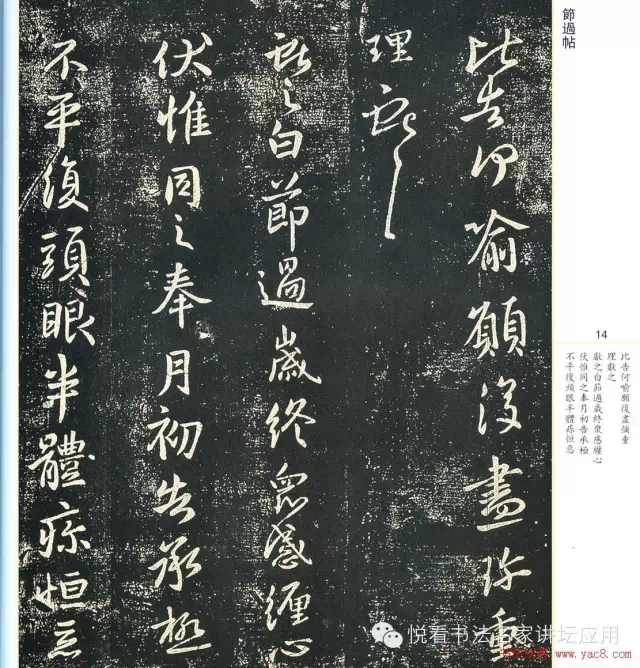 節過帖
比告何喻願復盡彌重
理獻之
獻之白節過歲終眾感纏心
伏惟同之奉月初告承極
不平復頭眼半體疼恒忌
14
比告何喻願復盡彌重
理獻之
獻之白節過歲終衆感纏心
伏惟同之奉月初告承極
不平復頭眼半體疼恒忌
悦看书法名家讲坛应用
www.yac8.com